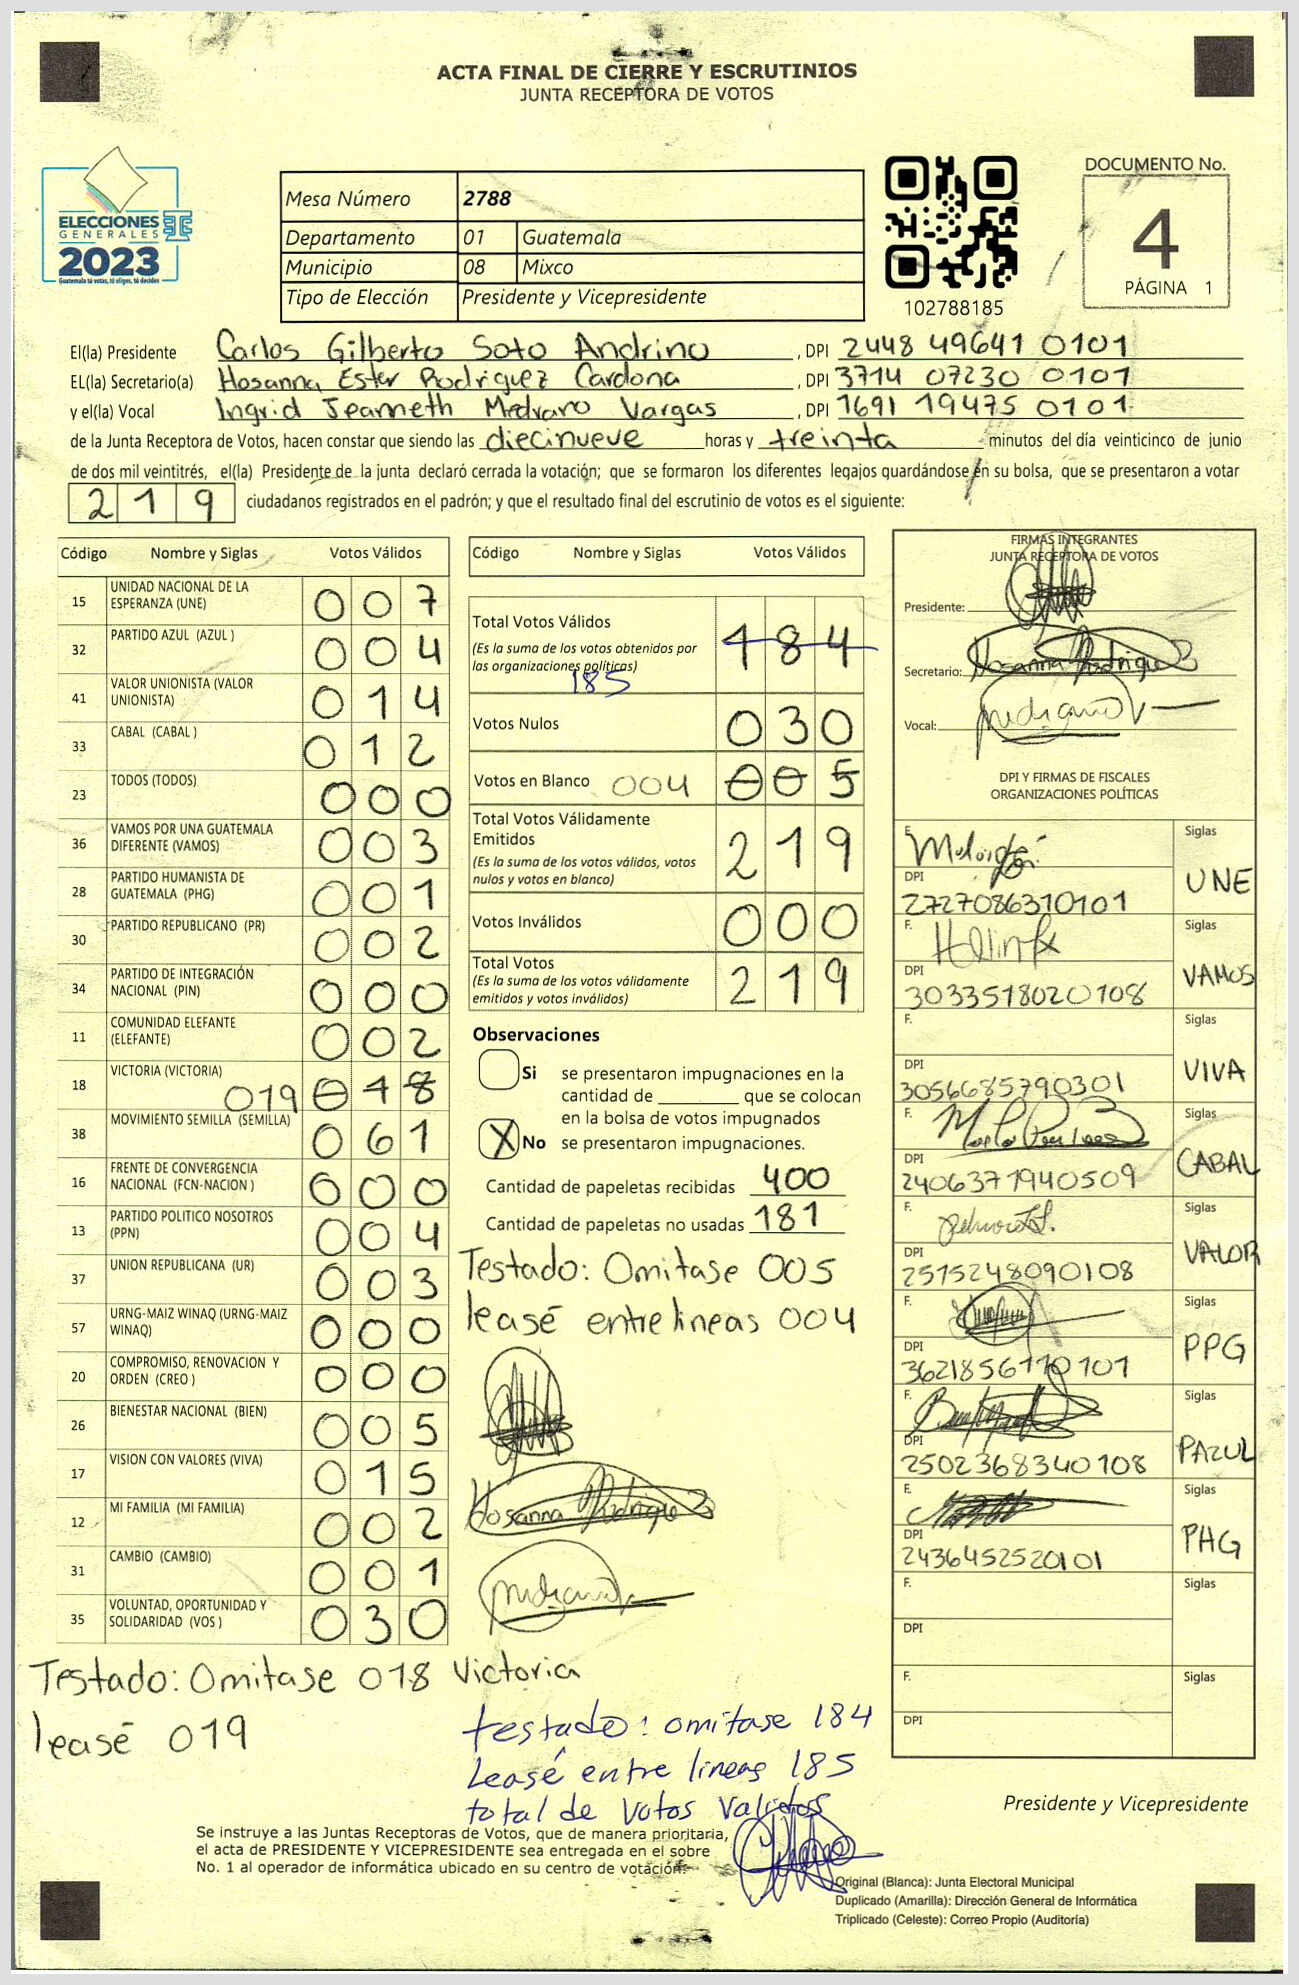 ACTA FINAL DE CIERRE Y ESCRUTINIOS
JUNTA RECEPTORA DE VOTOS
ELECCIONES
GENERALES
2023
Guatemala tú votas, tú eliges, tú decides
Mesa Número 2788
Departamento 01 Guatemala
Municipio 08 Mixco
Tipo de Elección Presidente y Vicepresidente
102788185
DOCUMENTO No.
4
PÁGINA 1
El(la) Presidente Carlos Gilberto Soto Andrino, DPI 2448 49641 0101
EL(la) Secretario(a) Hosanna Ester Rodriguez Cardona, DPI 3714 07230 0101
y el(la) Vocal Ingrid Jeanneth Medrano Vargas, DPI 1691 19475 0101
de la Junta Receptora de Votos, hacen constar que siendo las diecinueve horas y treinta minutos del día veinticinco de junio
de dos mil veintitrés, el(la) Presidente de la junta declaró cerrada la votación; que se formaron los diferentes legajos guardándose en su bolsa, que se presentaron a votar
219 ciudadanos registrados en el padrón; y que el resultado final del escrutinio de votos es el siguiente:
Código Nombre y Siglas Votos Válidos
15 UNIDAD NACIONAL DE LA ESPERANZA (UNE) 007
32 PARTIDO AZUL (AZUL ) 004
41 VALOR UNIONISTA (VALOR UNIONISTA) 014
33 CABAL (CABAL ) 012
23 TODOS (TODOS) 000
36 VAMOS POR UNA GUATEMALA DIFERENTE (VAMOS) 003
28 PARTIDO HUMANISTA DE GUATEMALA (PHG) 001
30 PARTIDO REPUBLICANO (PR) 002
34 PARTIDO DE INTEGRACIÓN NACIONAL (PIN) 000
11 COMUNIDAD ELEFANTE (ELEFANTE) 002
18 VICTORIA (VICTORIA) 019 018
38 MOVIMIENTO SEMILLA (SEMILLA) 061
16 FRENTE DE CONVERGENCIA NACIONAL (FCN-NACION ) 000
13 PARTIDO POLITICO NOSOTROS (PPN) 004
37 UNION REPUBLICANA (UR) 003
57 URNG-MAIZ WINAQ (URNG-MAIZ WINAQ) 000
20 COMPROMISO, RENOVACION Y ORDEN (CREO ) 000
26 BIENESTAR NACIONAL (BIEN) 005
17 VISION CON VALORES (VIVA) 015
12 MI FAMILIA (MI FAMILIA) 002
31 CAMBIO (CAMBIO) 001
35 VOLUNTAD, OPORTUNIDAD Y SOLIDARIDAD (VOS ) 030
Testado: Omitase 018 Victoria
leasé 019
Código Nombre y Siglas Votos Válidos
Total Votos Válidos 184
(Es la suma de los votos obtenidos por
las organizaciones políticas)
185
Votos Nulos 030
Votos en Blanco 004 005
Total Votos Válidamente
Emitidos 219
(Es la suma de los votos válidos, votos
nulos y votos en blanco)
Votos Inválidos 000
Total Votos 219
(Es la suma de los votos válidamente
emitidos y votos inválidos)
Observaciones
Si se presentaron impugnaciones en la
cantidad de ________ que se colocan
en la bolsa de votos impugnados
X No se presentaron impugnaciones.
Cantidad de papeletas recibidas 400
Cantidad de papeletas no usadas 181
Testado: Omitase 005
leasé entre lineas 004
Hosanna Rodriguez
testado: omitase 184
Leasé entre lineas 185
total de votos validos
FIRMAS INTEGRANTES
JUNTA RECEPTORA DE VOTOS
Presidente:
Secretario: Hosanna Rodriguez
Vocal:
DPI Y FIRMAS DE FISCALES
ORGANIZACIONES POLÍTICAS
F. Siglas
DPI 2727086310101 UNE
F. Siglas
DPI 3033518020108 VAMOS
F. Siglas
DPI 3056685790301 VIVA
F. Siglas
DPI 2406371940509 CABAL
F. Siglas
DPI 2515248090108 VALOR
F. Siglas
DPI 3621856110101 PPG
F. Siglas
DPI 2502368340108 PAZUL
F. Siglas
DPI 2436452520101 PHG
F. Siglas
DPI
F. Siglas
DPI
Presidente y Vicepresidente
Se instruye a las Juntas Receptoras de Votos, que de manera prioritaria,
el acta de PRESIDENTE Y VICEPRESIDENTE sea entregada en el sobre
No. 1 al operador de informática ubicado en su centro de votación.
Original (Blanca): Junta Electoral Municipal
Duplicado (Amarilla): Dirección General de Informática
Triplicado (Celeste): Correo Propio (Auditoría)